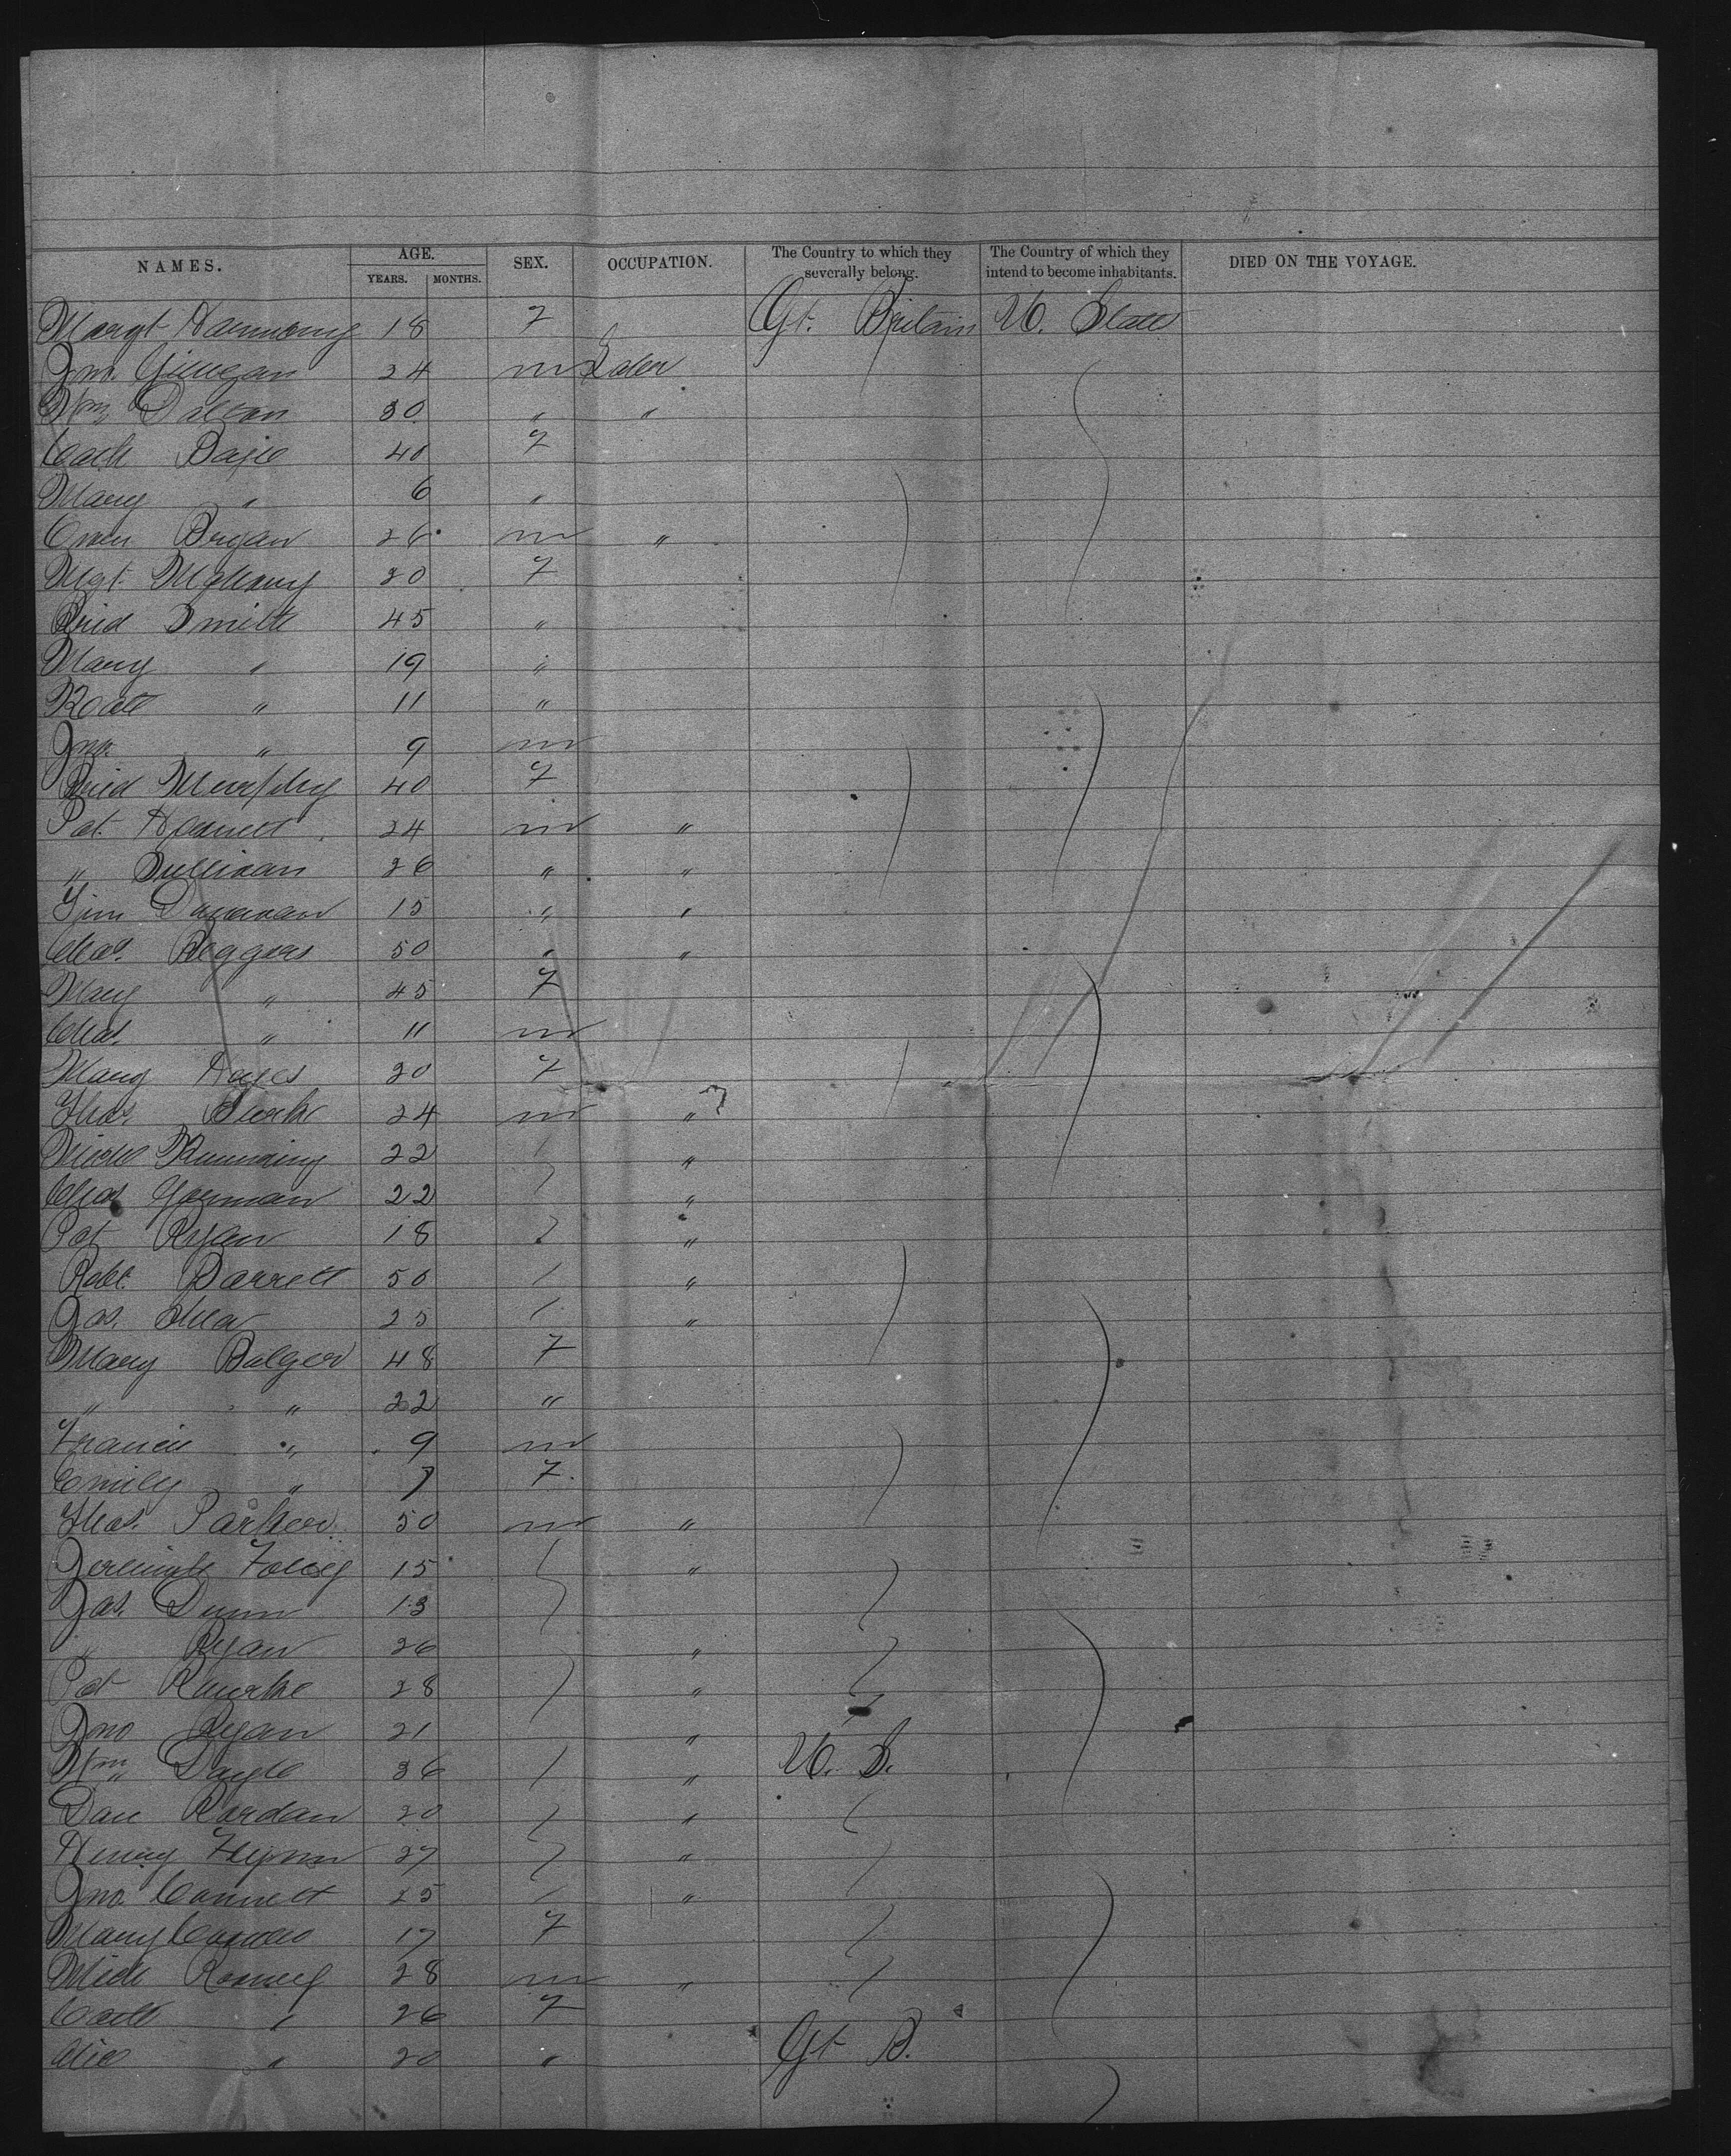 NAMES. AGE. SEX. OCCUPATION. The Country to which they severally belong. The Country of which they intend to become inhabitants. DIED ON THE VOYAGE.
YEARS. MONTHS.
Margt 18 F Gt. Britain U. States
Jno. Gilligan 24 m Labr
Wm Dalton 30 " "
Cath 40 F
Mary " 6 "
Owen Bryan 26 m "
Mgt. 20 F
Brid Smith 45 "
Mary " 19 "
Kate " 11 "
Jno. " 9 m
Brid Murphy 40 F
Pat. 24 m "
" Sullivan 26 " "
Tim Donovan 15 " "
Chas. 50 " "
Mary " 45 F
Chas. " 11 m
Mary Hayes 20 F
Thos. Burke 24 m "
22 "
Chas Gorman 22 "
Pat Ryan 18 "
Robt. Barrett 50 "
Jas. Shea 25 "
Mary Bolger 48 F
" " 22 "
Francis " 9 m
Emily " 7 F
Thos. Parker 50 m "
Jeremiah Foley 15 "
Jas. Dunn 13
" Ryan 26 "
Pat Rourke 28 "
Jno Ryan 21 "
Wm Doyle 36 " U. S.
Dan Rordan 20 "
Henry Flynn 27 "
Jno. 25 "
Mary 17 F
Mich 28 m "
Cath " 26 F
Alice " 20 " Gt B.